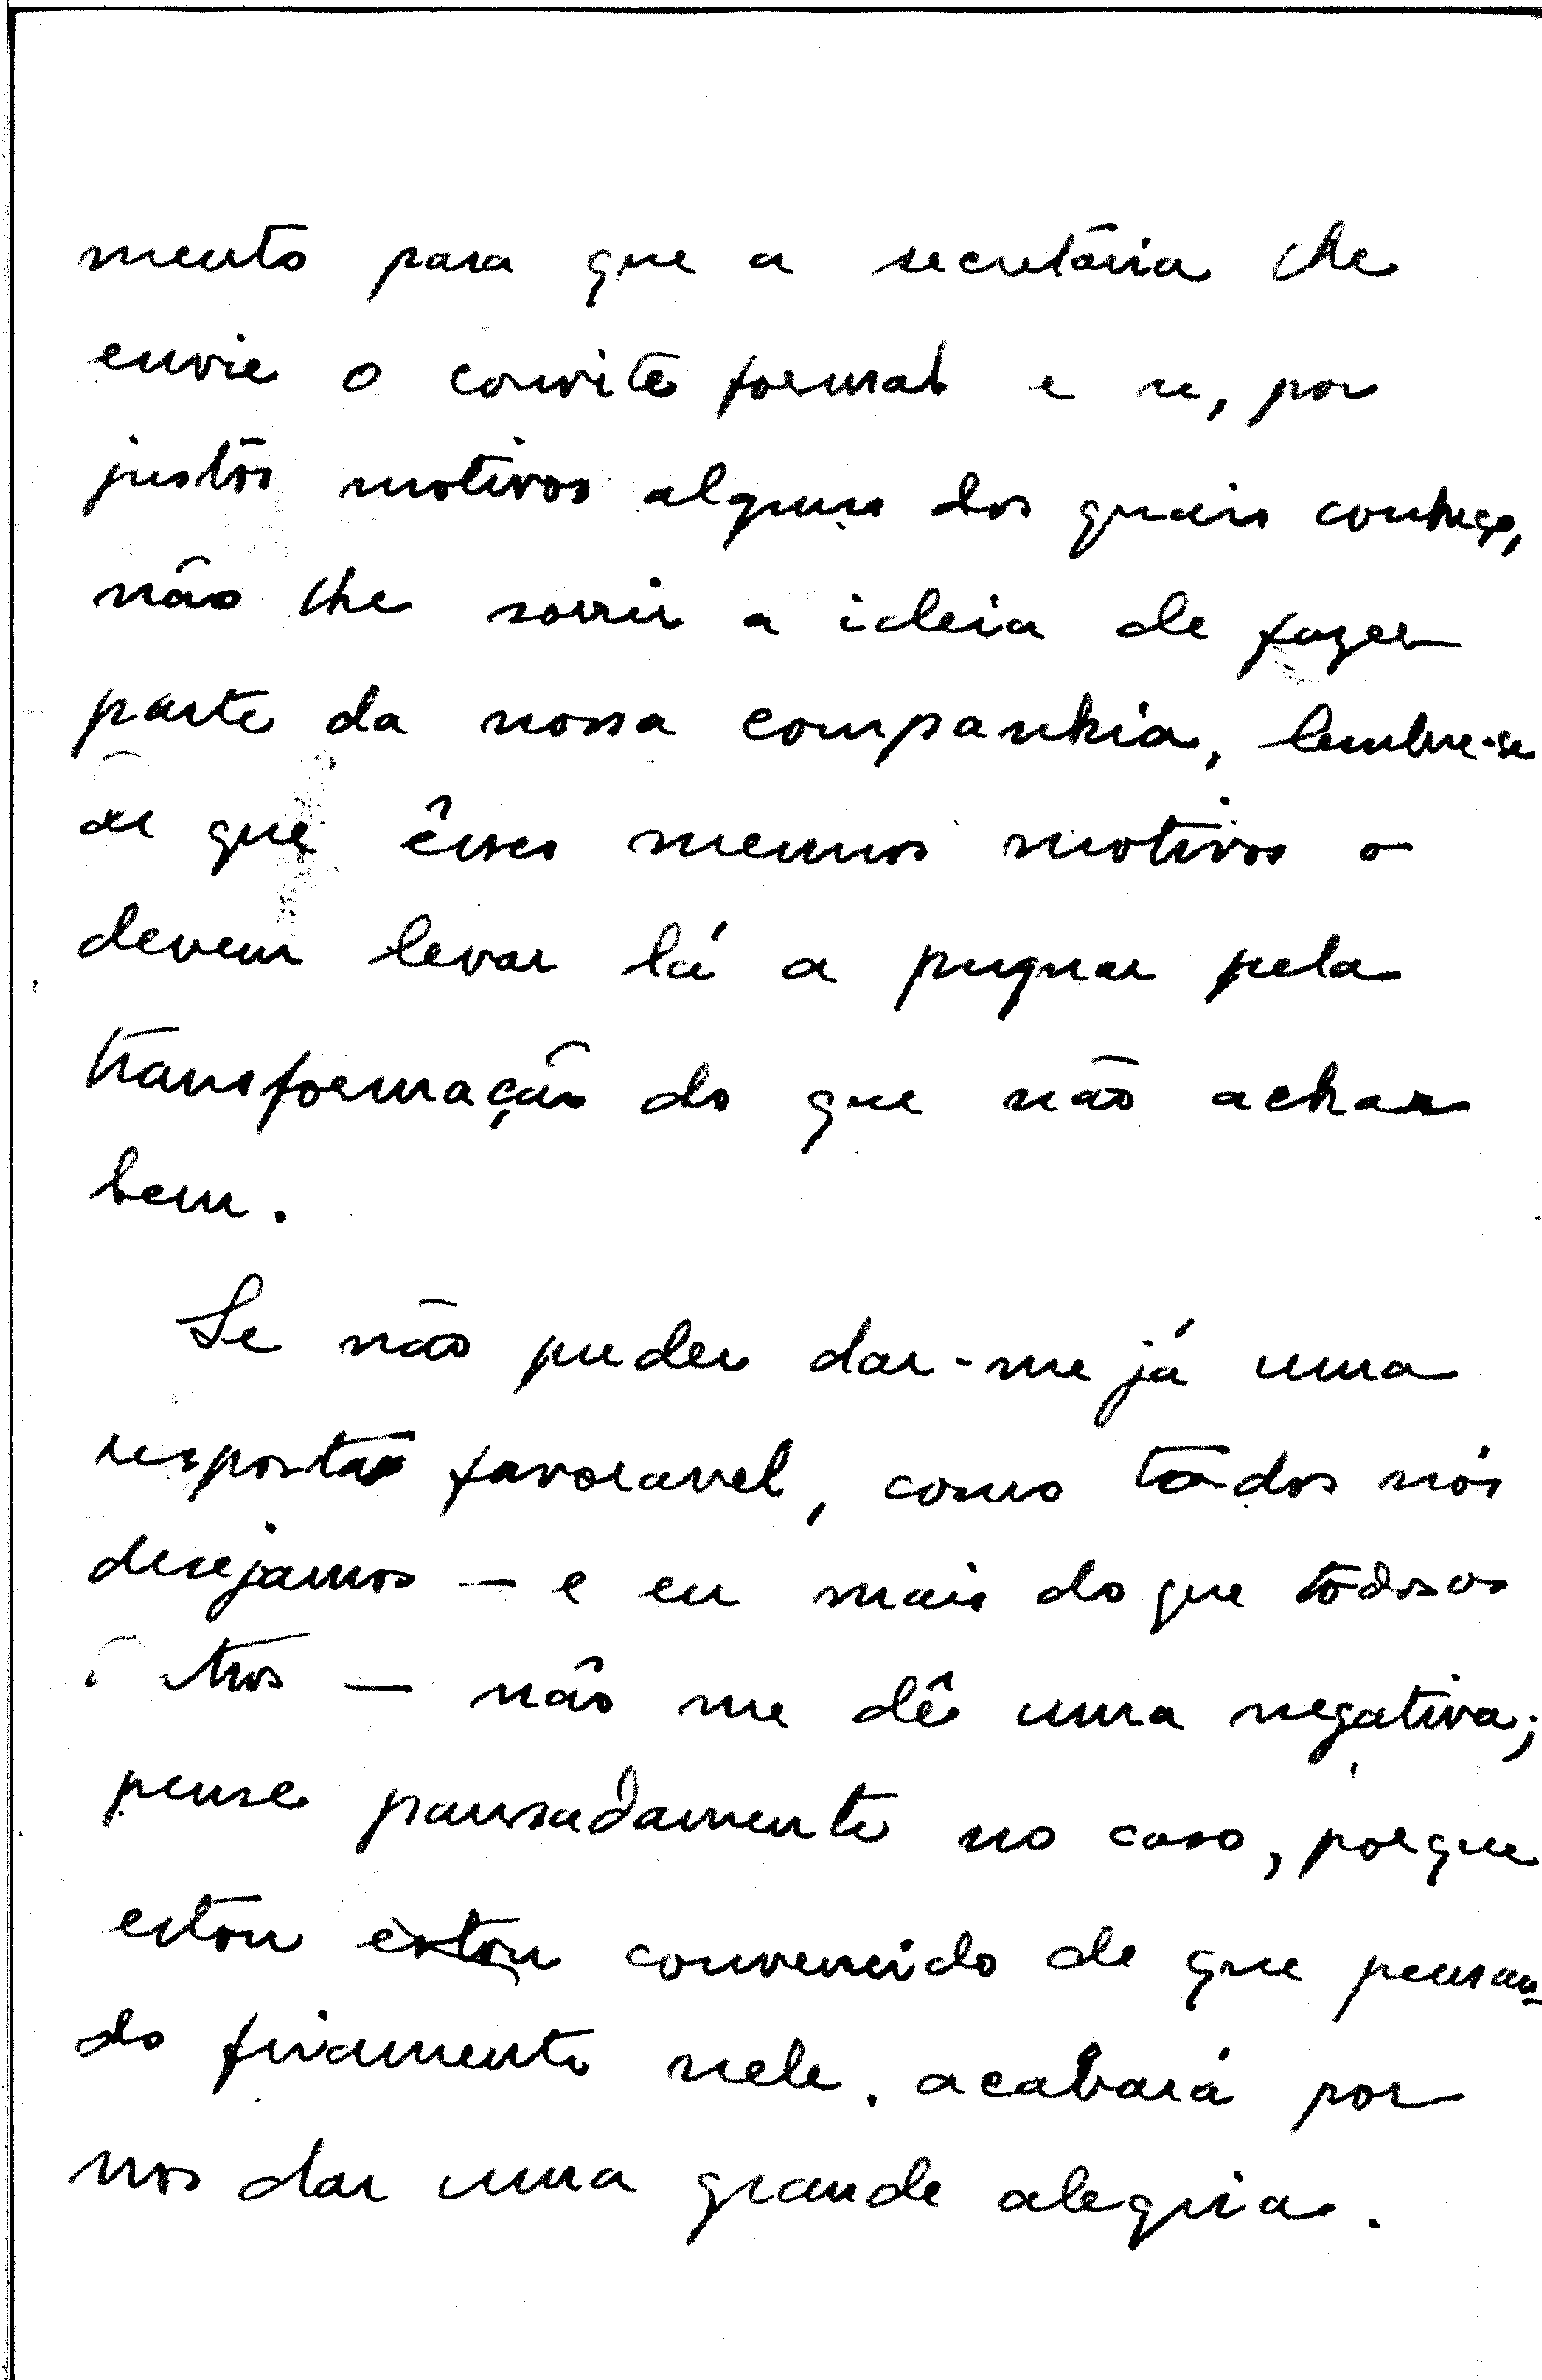 mento para que a secretária lhe
envie o convite formal e se, por
justos motivos alguns dos quais conheço,
não lhe sorrir a ideia de fazer
parte da nossa companhia, lembre-se
de que êsses mesmos motivos o
devem levar lá a pugnar pela
transformação do que não achar
bem.
Se não puder dar-me já uma
resposta favoravel, como todos nós
desejamos — e eu mais do que todos os
outros — não me dê uma negativa;
pense pausadamente no caso, porque
estou estou convencido de que pensan-
do friamente nele, acabará por
nos dar uma grande alegria.